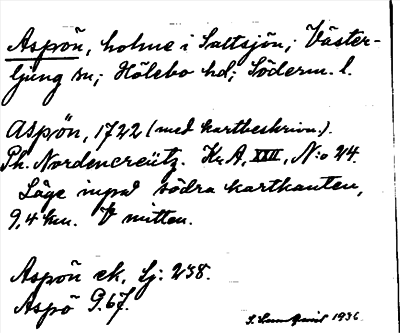 Aspön, holme i Saltsjön; Väster-
ljung sn; Hölebo hd; Söderm. l.
Aspön, 1722 (med kartbeskrivn.).
Ph. Nordencreütz. Kr. A, XXII, N:o 24.
Läge inpå södra kartkanten,
9,4 km. V mitten.
Aspön ek, Lj: 238.
Aspö 9.67.
1936